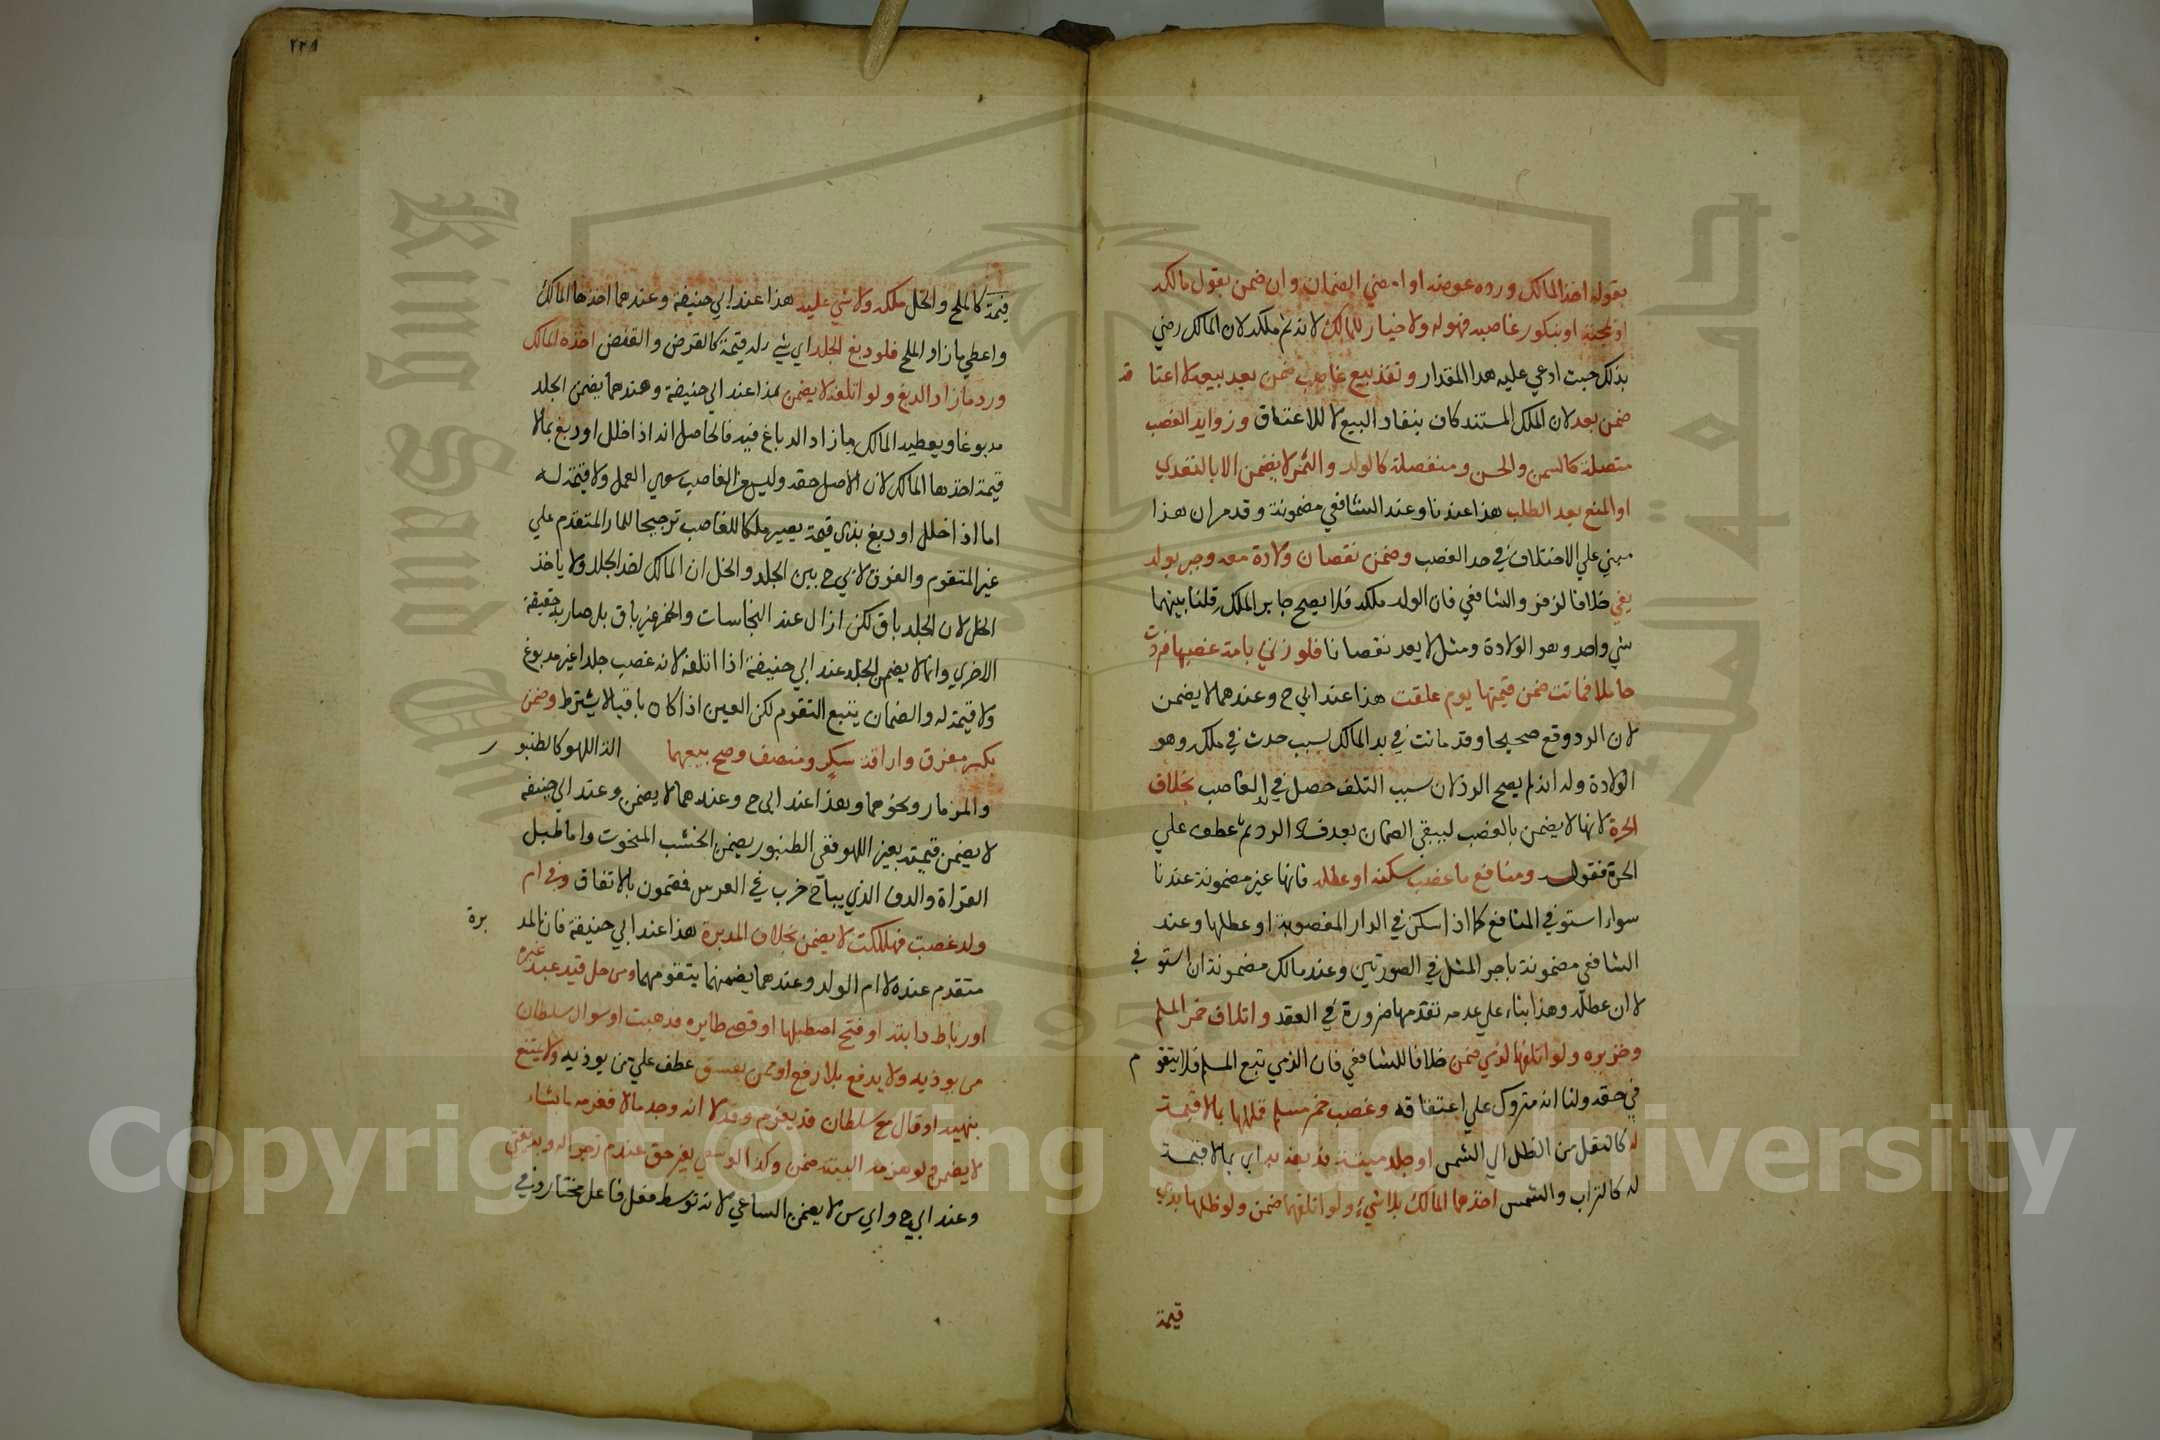 بقوله اخذ المالك ورده عوضه او امضي الضمان وان ضمن بقول مالكه
او بحجته او بنكور غاصبه فهو له ولا خيار للمالك لانه تم ملكه لان المالك رضي
بذلك حيث ادعي عليه هذا المقدار ونفذ بيع غاصب ضمن بعد بيعه لا اعتا قه
ضمن بعد لان الملك المستند كاف بنفاد البيع لا للاعتاق وزوايد الغصب
متصلة كالسمن والحسن ومنفصلة كالولد والثمر لا يضمن الا بالتعدي
او المنع بعد الطلب هذا عندنا وعند الشافعي مضمونة وقد مر ان هذا
مبني علي الاختلاف في حد الغصب وضمن نقصان ولادة معه وجبر بولد
يفي خلافا لزفر والشافعي فان الولد ملكه فلا يصح جابر الملكه قلنا بينهما
شي واحد وهو الولادة ومثل لا يعد نقصانا فلو زني بامة غصبها فردت
حاملا فماتت ضمن قيمتها يوم علقت هذا عند ابي ح وعندهما لا يضمن
لان الرد وقع صحيحا وقد ماتت في يد المالك بسبب حدث في ملكه وهو
الولادة وله انه لم يصح الرد لان سبب التلف حصل في يد الغاصب بخلاف
الحرة لانها لا يضمن بالغصب ليبقي الضمان بعد الرد ثم عطف علي
الحرة فقوله ومنافع ما غصب سكنه او عطله فانها غير مضمونة عندنا
سواء استوفي المنافع كما اذا سكن في الدار المغصوبة او عطلها وعند
الشافعي مضمونة باجر المثل في الصورتين وعند مالك مضمونة ان استو في
لا ان عطله وهذا بناء علي عدم تقومها ضرورة في العقد واتلاف خمر المسلم
وخنزيره ولو اتلفها لذمي ضمن خلافا للشافعي فان الذمي تبع المسلم فلا يتقو م
في حقه ولنا انه متروك علي اعتقاده وغصب خمر مسلم فخللها بما لا قيمة
له كالنقل من الظل الي الشمس او جلد ميتة فدبغه به اي بما لا قيمة
له كالتراب والشمس اخذهما المالك بلا شيء ولو اتلفها ضمن ولو خللها بذي
قيمة
٢٢٨
قيمة كالملح والخل ملكه ولا شي عليه هذا عند ابي حنيفة وعندهما اخذها المالك
واعطي ما زاد الملح فلو دبغ الجلد اي بشي له قيمة كالقرض والعفص اخذه المالك
ورد ما زاد الدبغ ولو اتلفه لا يضمن هذا عند ابي حنيفة وعندهما يضمن الجلد
مدبوغا ويعطيه المالك ما زاد الدباغ فيه فالحاصل انه اذا خلل او دبغ بما لا
قيمة اخذها المالك لان الاصل حقه وليس من الغاصب سوي العمل ولا قيمة له
اما اذا خلل او دبغ بذي قيمة يصير ملكا للغاصب ترجيحا للمال المتقوم علي
غير المتقوم والفرق لابي ح بين الجلد والخل ان المالك اخذ الجلد ولا ياخذ
الخل لان الجلد باق لكن ازال عنه النجاسات والخمر غير باق بل صار به حقيقة
الاخري وانما لا يضمن الجلد عند ابي حنيفة اذا اتلفه لانه غصب جلدا غير مدبوغ
ولا قيمة له والضمان يتبع التقوم لكن العين اذا كان باقيا لا يشترط وضمن
بكسر معزف واراقة سكر ومنصف وصح بيعهما الة اللهو كالطنبو ر
والمزمار ونحوهما وهذا عند ابي ح وعندهما لا يضمن وعند ابي حنيفة
لا يضمن قيمته بغير اللهو ففي الطنبور يضمن الخشب المنحوت واما طبل
الغزاة والدف الذي يباح ضرب في العرس فمضمون بالاتفاق وفي ام
ولد غصبت فهلكت لا يضمن بخلاف المدبرة هذا عند ابي حنيفة فان المد برة
متقوم عنده لا ام الولد وعندهما يضمنها بتقومهما ومن حل قيد عبد غيره
او رباط دابته او فتح اصطبلها او قفص طايره فذهبت او سوال سلطان
من يوذيه ولا يدفع بلا رفع او من يفسق عطف علي من يوذيه ولا يمتنع
بنهيه او قال مع سلطان قد يغرم وقد لا انه وجد مالا فغرمه ما شاء
لا يضمن ولو غرمه البتة ضمن وكذا لو سعي بغير حق عند م زجرا له وبه يفتي
وعند ابي ح وابي س لا يضمن الساعي لانه توسط فعل فاعل مختار وفي
Copyright © King Saud University
King Saud University
جامعة الملك سعود
1957